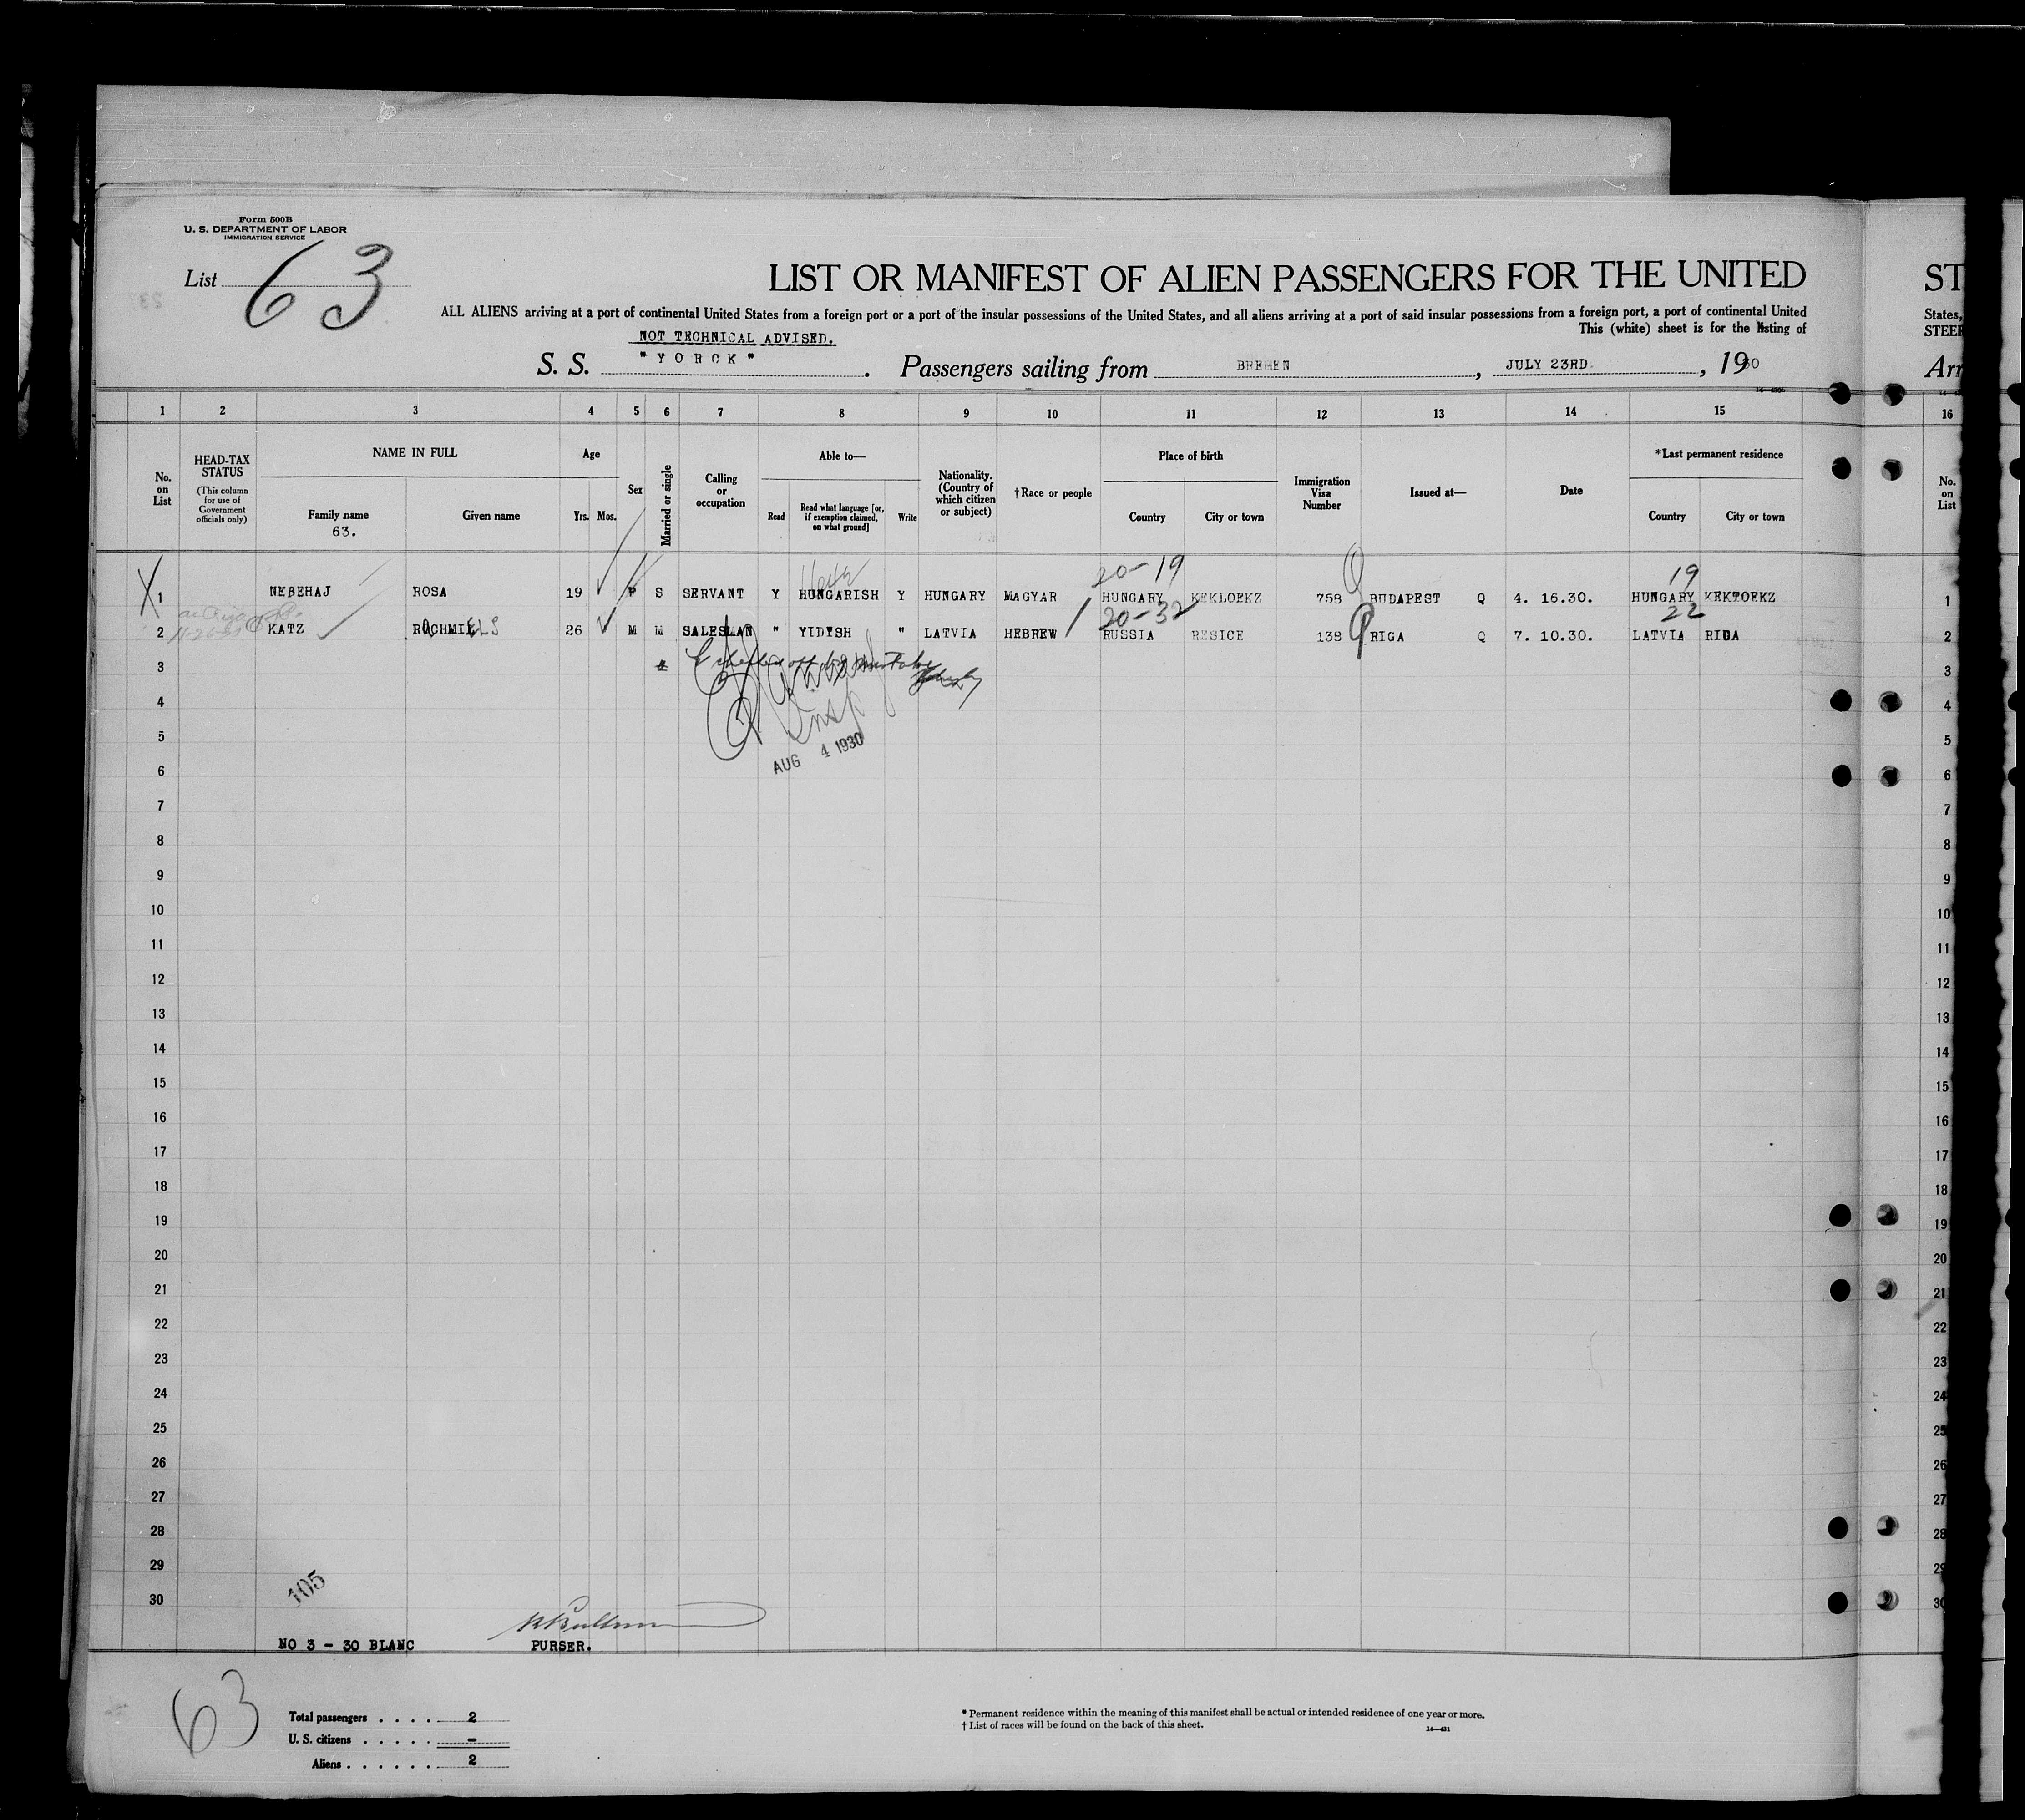 Form 500B
U. S. DEPARTMENT OF LABOR
IMMIGRATION SERVICE
List 63
LIST OR MANIFEST OF ALIEN PASSENGERS FOR THE UNITED
ST
ALL ALIENS arriving at a port of continental United States from a foreign port or a port of the insular possessions of the United States, and all aliens arriving at a port of said insular possessions from a foreign port, a port of continental United
States,
This (white) sheet is for the listing of
STEER
NOT TECHNICAL ADVISED.
S. S. "YORCK". Passengers sailing from BREMEN, JULY 23RD., 1930
Arr
1 2 3 4 5 6 7 8 9 10 11 12 13 14 15 16
No. on List
HEAD-TAX STATUS (This column for use of Government officials only)
NAME IN FULL
Family name
63.
Given name
Age
Yrs. Mos.
Sex
Married or single
Calling or occupation
Able to—
Read
Read what language [or, if exemption claimed, on what ground]
Write
Nationality. (Country of which citizen or subject)
†Race or people
Place of birth
Country
City or town
Immigration Visa Number
Issued at—
Date
*Last permanent residence
Country
City or town
No. on List
20-19
19
1 NEBEHAJ ROSA 19 F S SERVANT Y HUNGARISH Y HUNGARY MAGYAR HUNGARY KEKLOEKZ 758 BUDAPEST Q 4. 16.30. HUNGARY KEKTOEKZ 1
20-32
22
2 KATZ RACHMIELS 26 M M SALESMAN " YIDISH " LATVIA HEBREW RUSSIA RESICE 138 RIGA Q 7. 10.30. LATVIA RIGA 2
3 3
4 4
5 5
AUG 4 1930
6 6
7 7
8 8
9 9
10 10
11 11
12 12
13 13
14 14
15 15
16 16
17 17
18 18
19 19
20 20
21 21
22 22
23 23
24 24
25 25
26 26
27 27
28 28
29 29
30 30
105
NO 3 - 30 BLANC
PURSER.
63
Total passengers . . . . 2
U. S. citizens . . . . . -
Aliens . . . . . . 2
* Permanent residence within the meaning of this manifest shall be actual or intended residence of one year or more.
† List of races will be found on the back of this sheet.
14—431